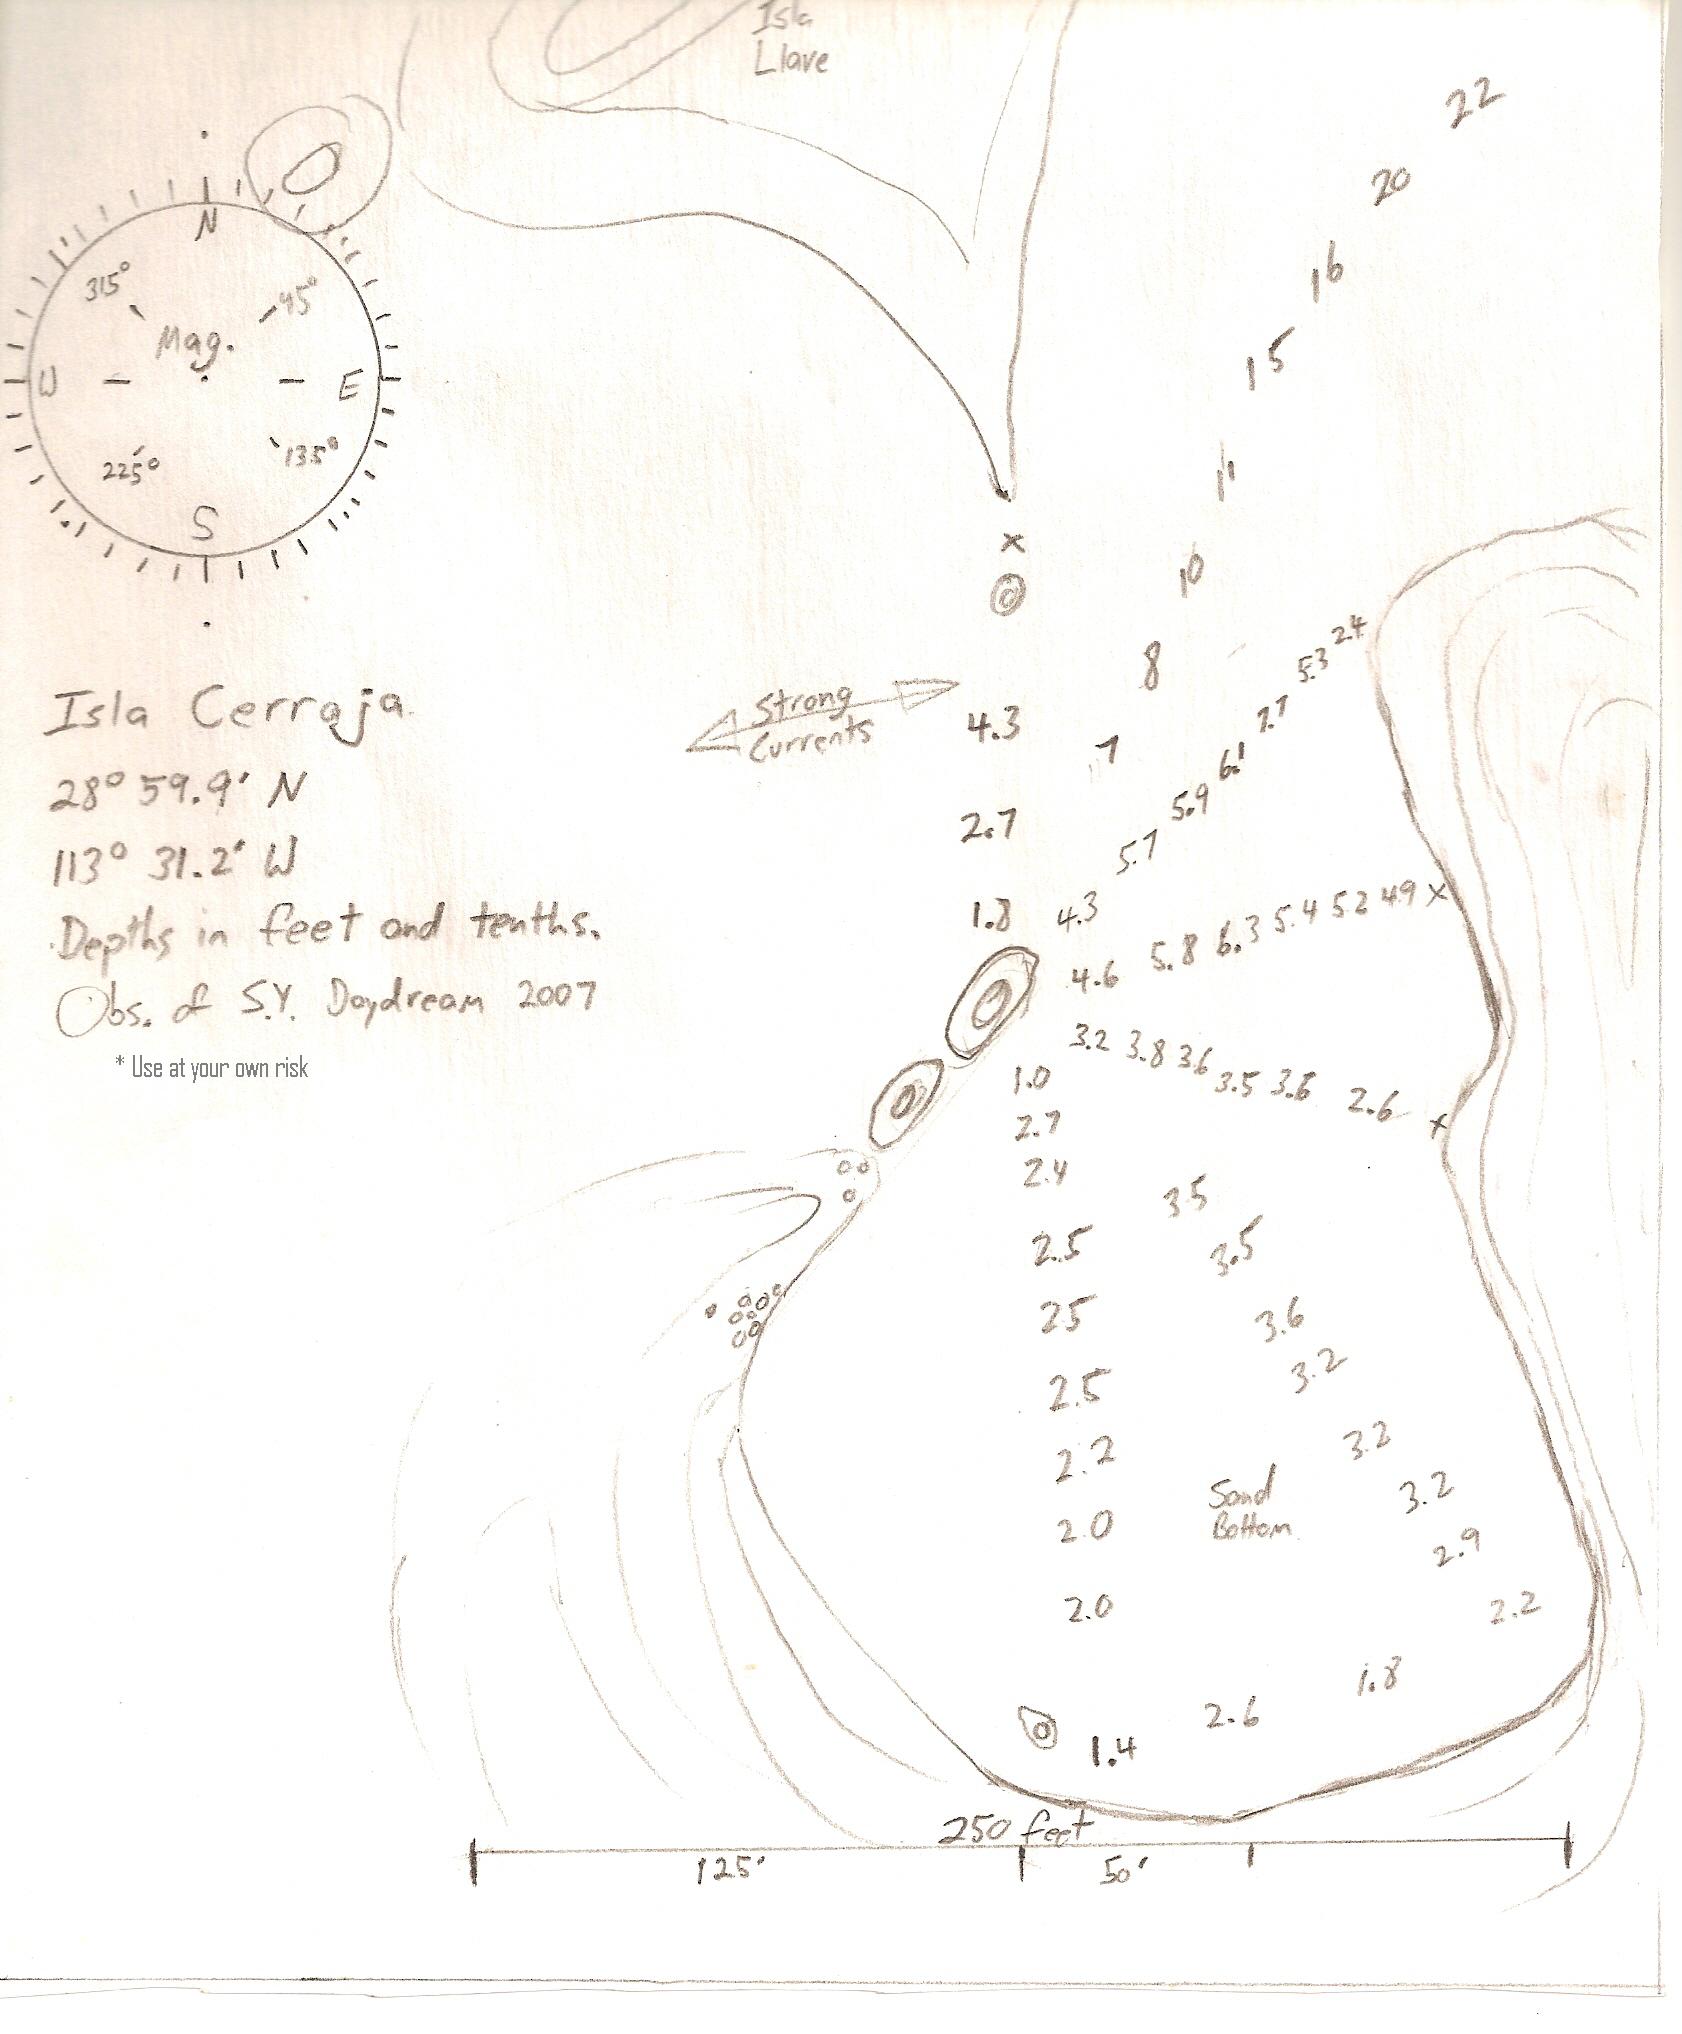 Isla
Llave
22
20
16
15
11
10
8
7
N
315°
45°
Mag.
W
E
225°
135°
S
Isla Cerraja
28° 59.9' N
113° 31.2' W
Depths in feet and tenths.
Obs. of S.Y. Daydream 2007
* Use at your own risk
Strong
Currents
4.3
2.7
1.8
4.3 5.7 5.9 6.1 7.7 5.3 2.4
4.6 5.8 6.3 5.4 5.2 4.9 x
3.2 3.8 3.6 3.5 3.6 2.6 x
x
1.0
2.7
2.4
2.5
25
2.5
2.2
2.0
2.0
3.5
3.5
3.6
3.2
3.2
3.2
2.9
2.2
Sand
Bottom
1.4 2.6 1.8
250 feet
125' 50'